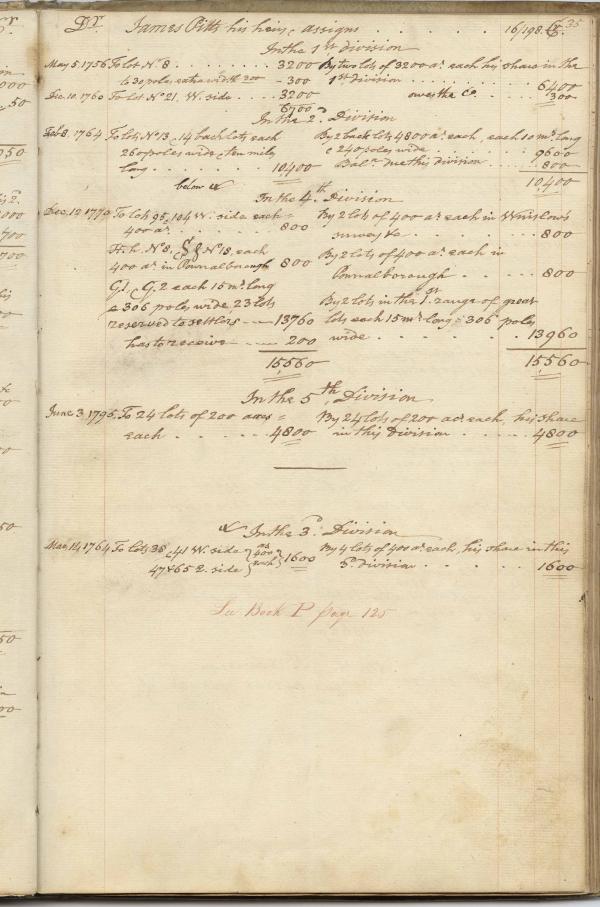 Dr James Pitts his heirs & assigns . . . . . 16/198. Cr 35
In the 1st division
May 5, 1756 To Lot N. 8 . . . . . . . 3200 By two lots of 3200 as. each his share in the
to 30 poles extra width 200 - 300 1st Division . . . . . . . 6400
Dec. 10, 1760 To Lot No 21, W. side . . 3200 owes the Co . . . 300
6700
In the 2. Division
Feb 8. 1764 To lots No 13, & 14 back lots each By 2 back lots 4800 as. each, each 10 ms. long
260 poles wide & ten mily & 240 poles wide . . . . . . 9600
long . . . . . . . 10,400 Balce. due this division . . . . 800
10,400
below &
In the 4th Division
Dec. 12 1770 To Lots 95, & 104 W. side each = By 2 lots of 400 as. each in Winslow's
400 as. . . . . . 800 survey &c . . . . . . 800
H. h. No 8, & No 18, each By 2 lots of 400 as. each in
400 as. in Pownalborough 800 Pownalborough . . . . . 800
G. 1, & G, 2 each 15 ms. long
& 306 poles wide, 23 lots By 2 lots in the 1st range of great
reserved to settlers — 13760 lots each 15 ms. long & 306 poles
has to receive — 200 wide . . . . . . . . 13960
15,560 15560
In the 5th Division
June 3, 1795, To 24 lots of 200 acres = By 24 lots of 200 acs each, his share
each . . . . . . 4800 in this Division . . . . . 4800
& In the 3d. Division
May, 14, 1764 To lots 35 & 41 W. side } as. 400 each } 1600 By 4 lots of 400 as. each, his share in this
47 & 65 E. side 3d Division . . . . . 1600
See Book P page 125